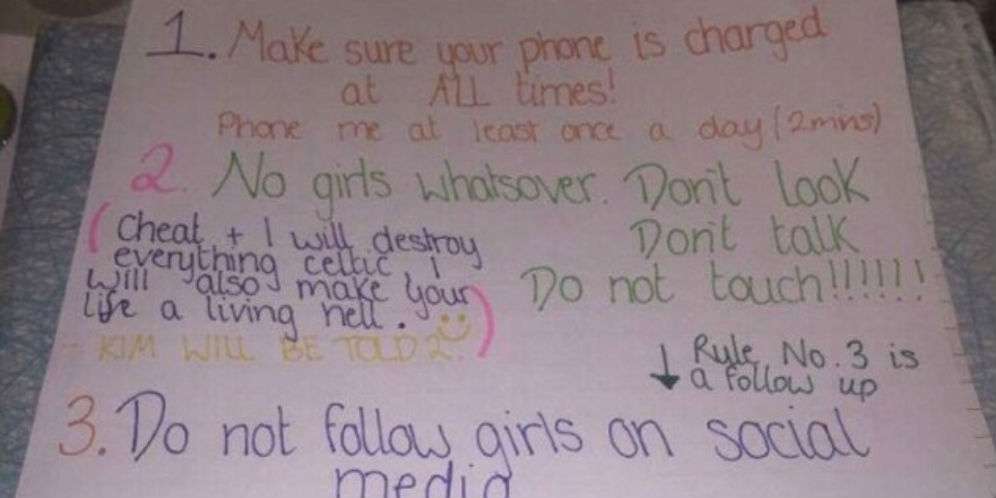 1. Make sure your phone is charged
at ALL times!
Phone me at least once a day (2mins)
2. No girls whatsover. Don't look
Don't talk
Do not touch!!!!!!
(Cheat + I will destroy
everything celtic, I
will also make your
life a living hell. )
- KIM WILL BE TOLD 2.
↓ Rule No. 3 is
a follow up
3. Do not follow girls on social
media